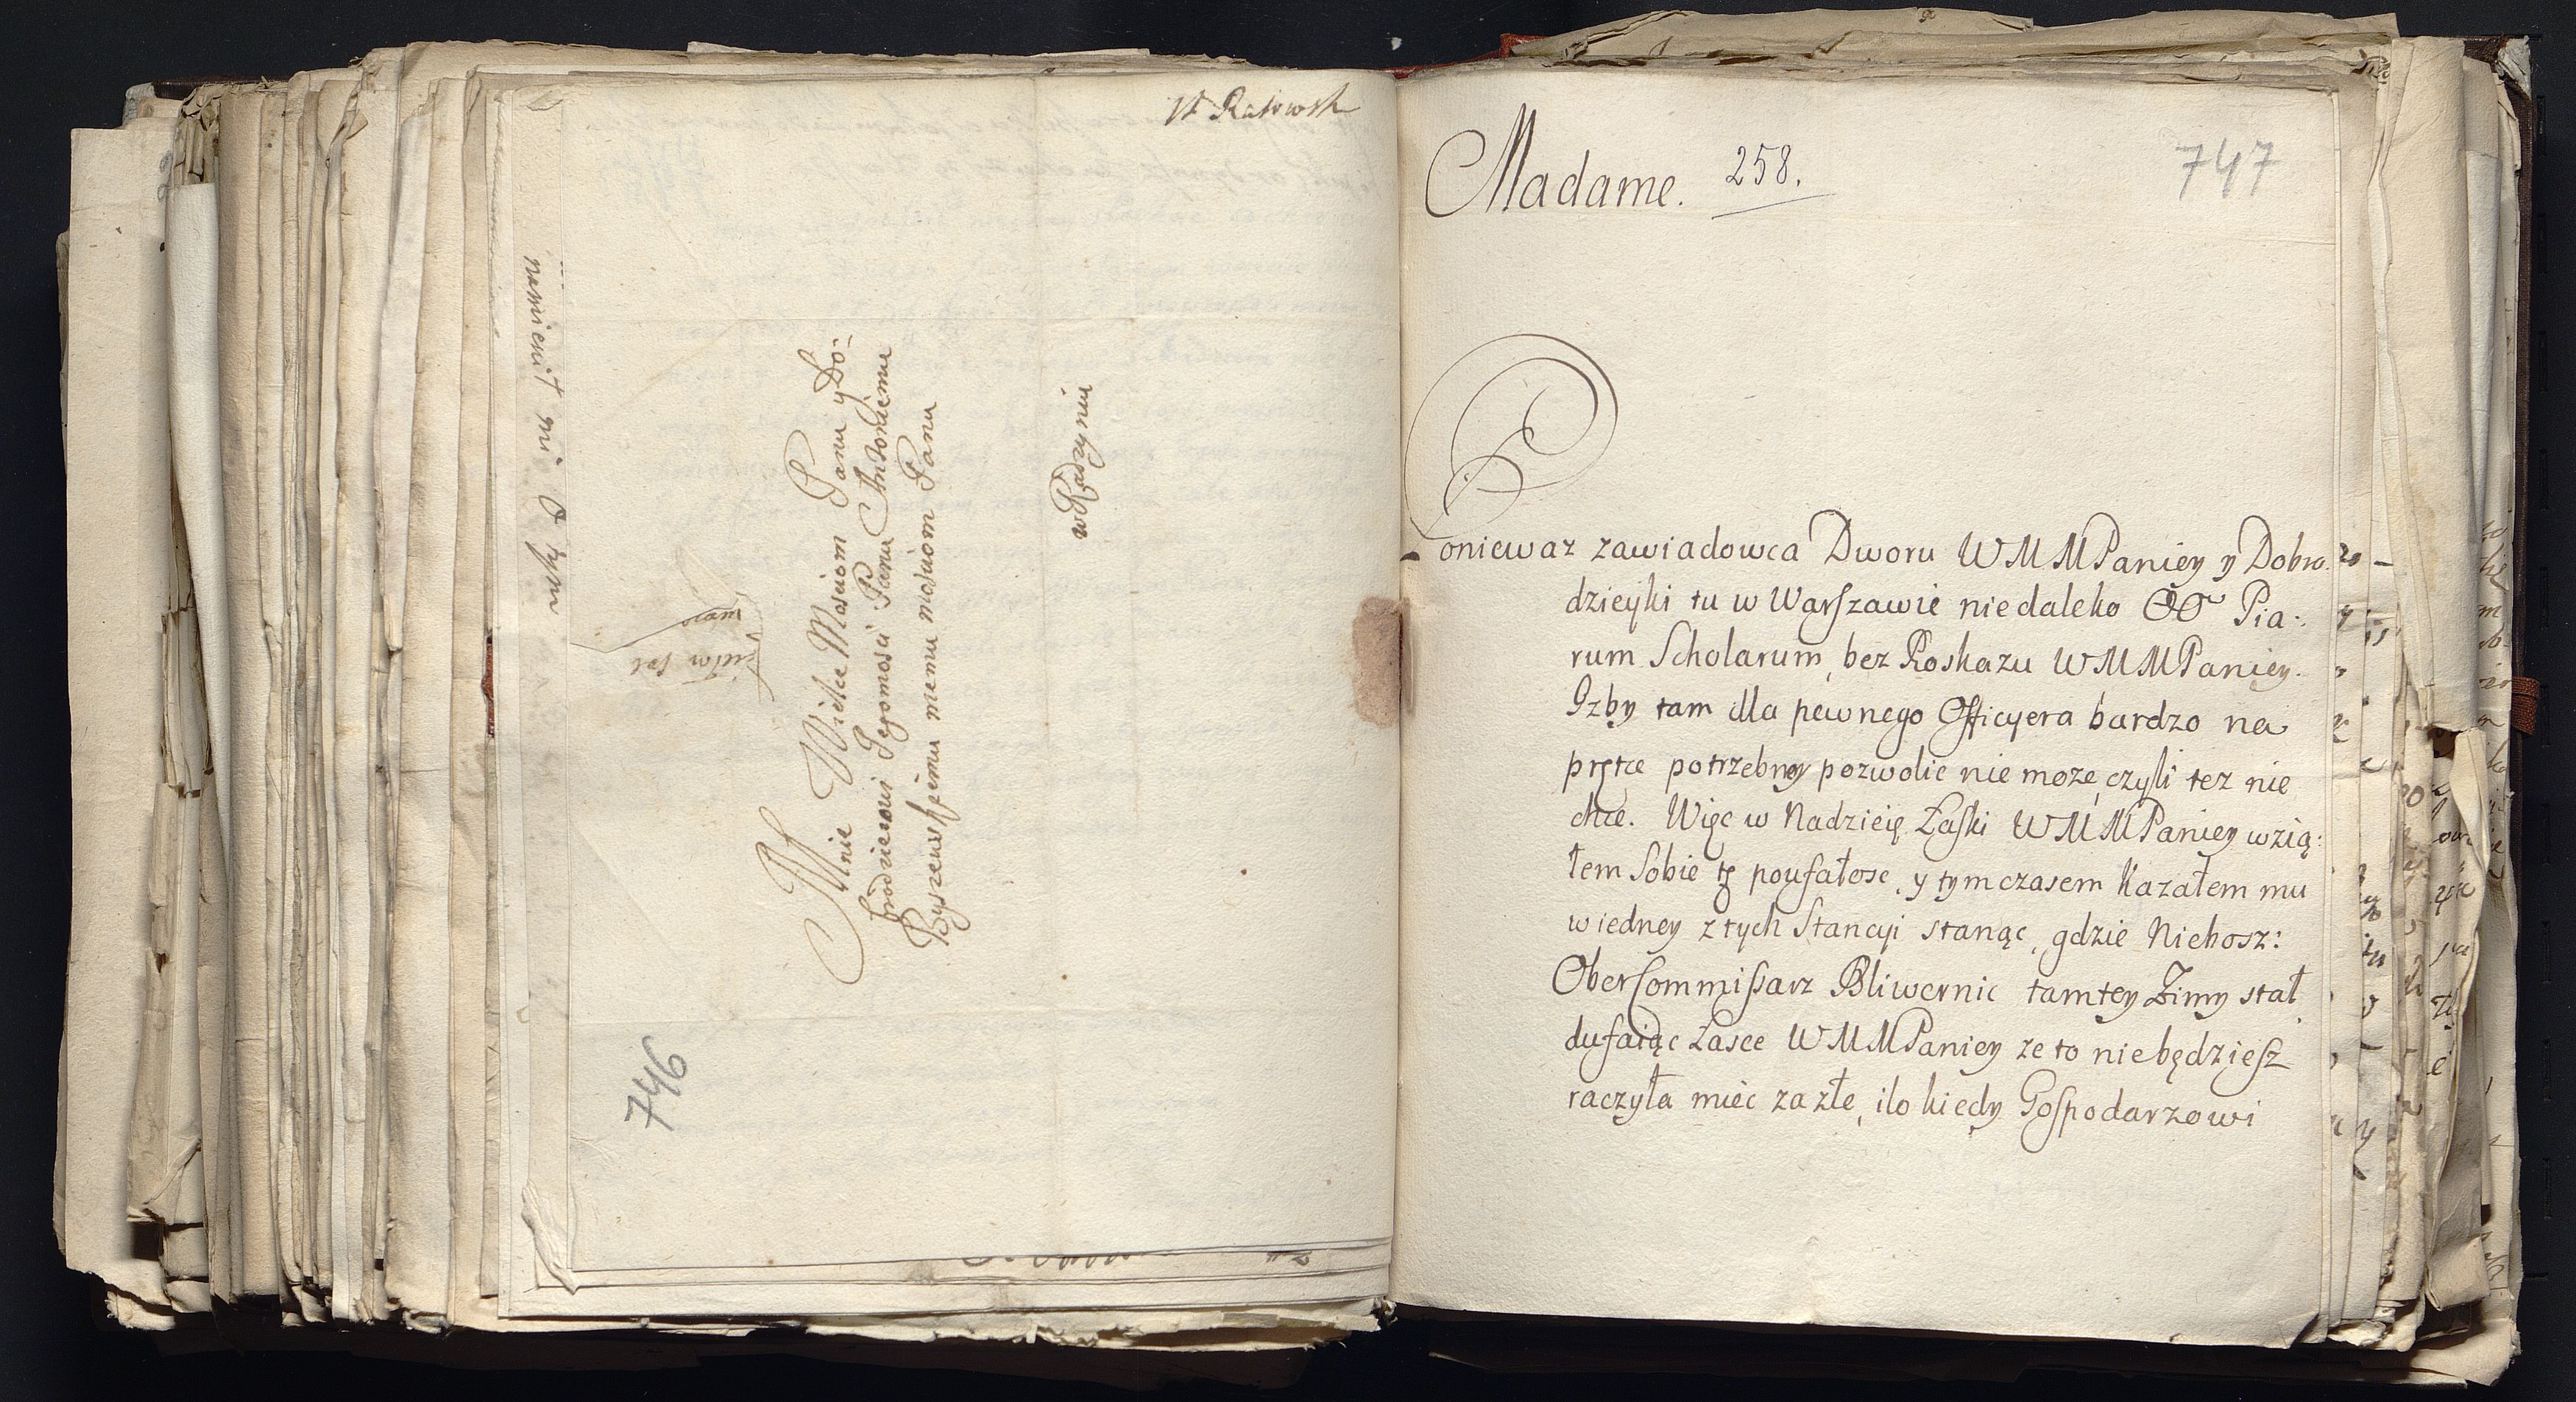 Mnie Wielce Mosciom Panu y Do-
brodzieiowi Jegomosci Panu Antoniemu
Byszewskiemu memu mosciom Panu
w Radzyniu
746
namienił mi o tym
Madame. 258.
747
Poniewaz zawiadowca Dworu WMMPaniey y Dobro.
dzieyki tu w Warszawie niedaleko OO Pia:
rum Scholarum, bez Roskazu WMMPaniey.
Izby tam dla pewnego Officyera bardzo na
prętce potrzebney pozwolic nie moze, czyli tez nie
chce. Więc w Nadzieię Łaski WMMPaniey wzią:
łem Sobie tę poufałosc, y tym czasem Kazałem mu
w iedney z tych Stancyi stanąc, gdzie Niebosz:
Obercommissarz Bliwernic tamtey Zimy stał,
dufaiąc Łasce WMMPaniey ze to nie będziesz
raczyła miec za złe, ilo kiedy Gospodarzowi